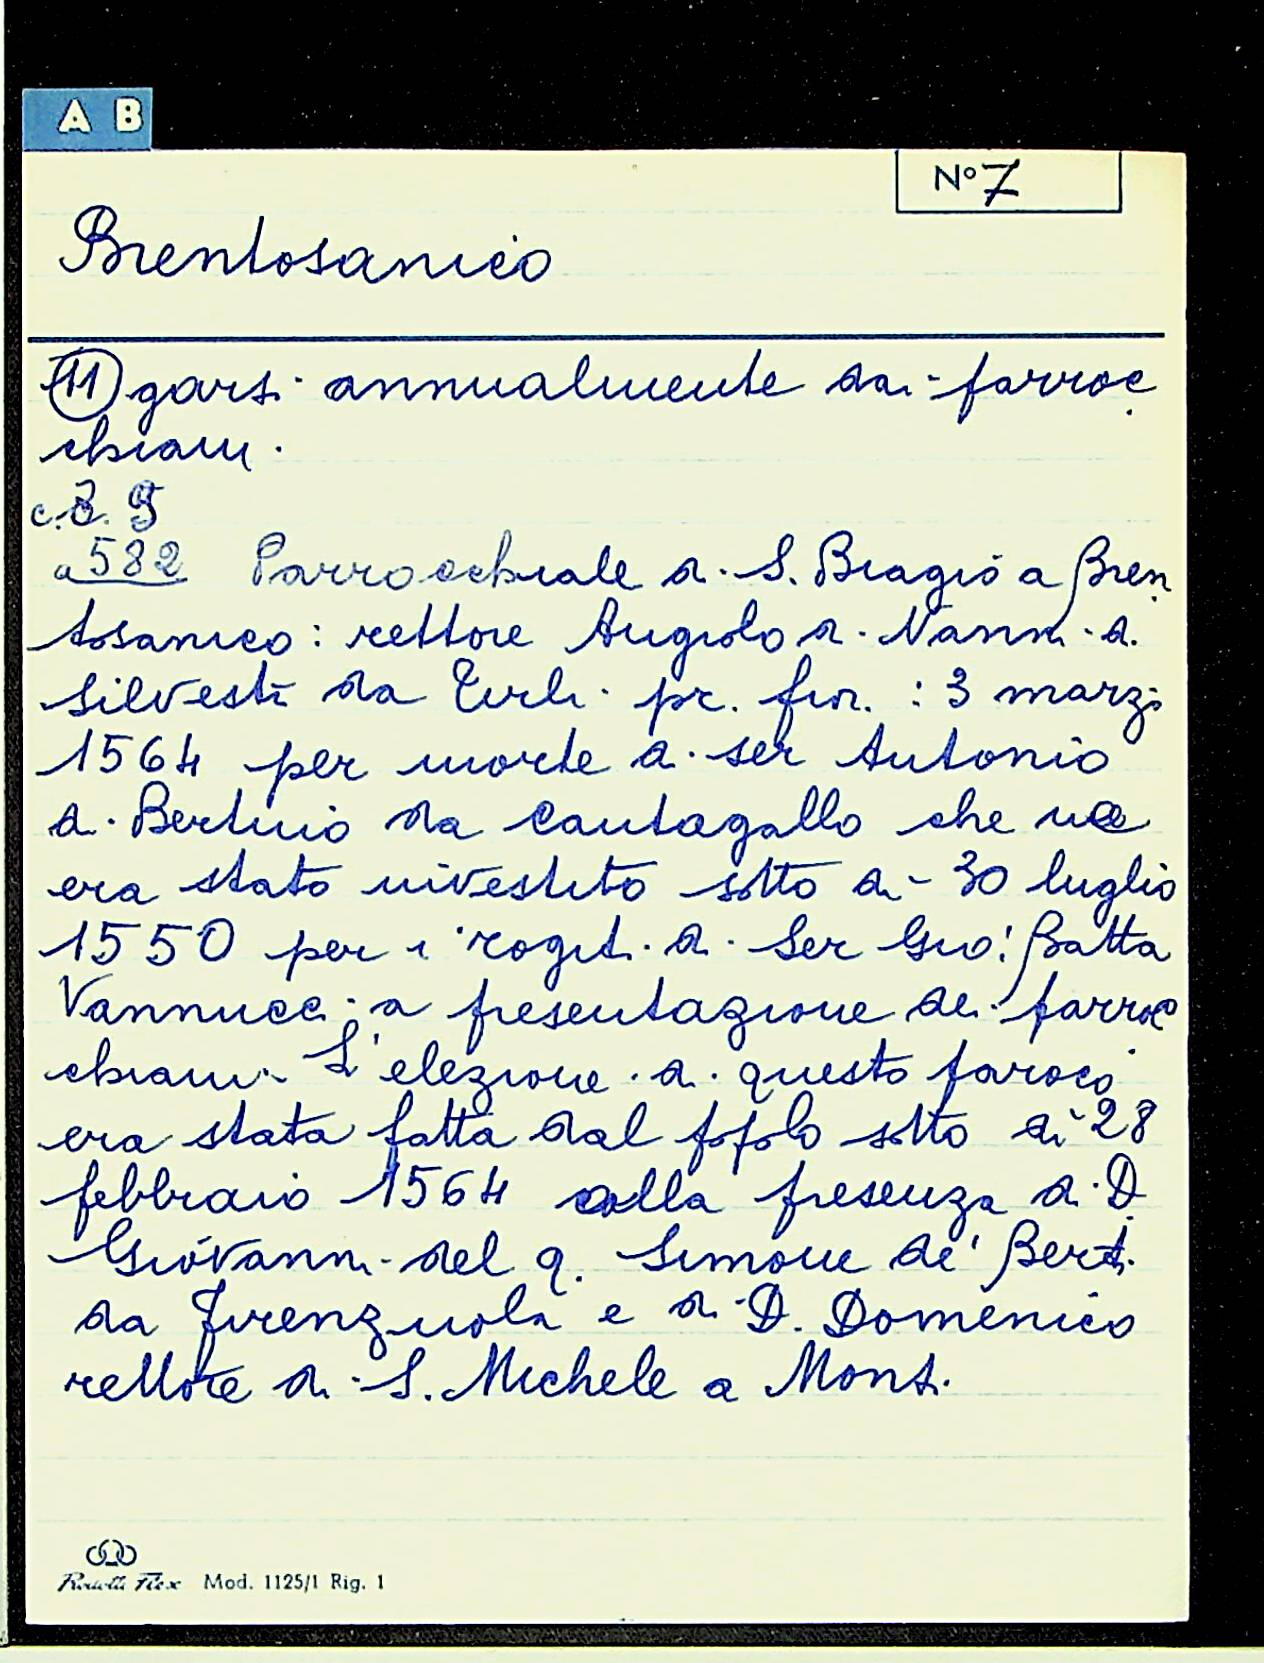 A B
N° 7
Brentosanico
(11) garsi annualmente dai parroc
chiani.
c.B. 9
a 582 Parrocchiale di S. Biagio a Bren
tosanico: rettore Angiolo di Nanni di
Silvestr da Erli pr. fior. : 3 marzo
1564 per morte di ser Antonio
di Bertino da Cantagallo che ne
era stato investito sotto dì 30 luglio
1550 per i rogiti di Ser Gio: Batta
Vannucci a presentazione dei parroc
chiani. L'elezione di questo paroco
era stata fatta dal popolo sotto dì 28
febbraio 1564 alla presenza di D.
Giovanni del q. Simone de' Berti
da Firenzuola e di D. Domenico
rettore di S. Michele a Monti.
Flex Mod. 1125/1 Rig. 1